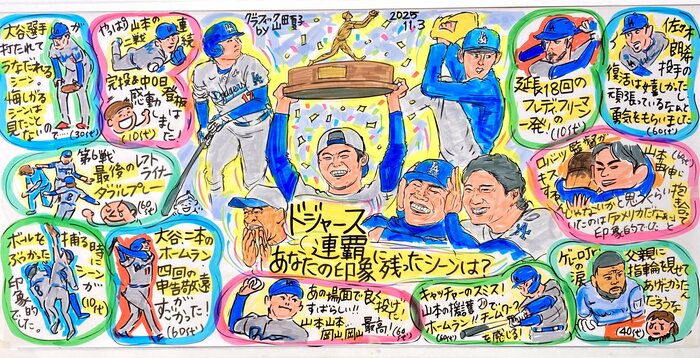 大谷選手が
打たれて
うなだれる
シーン
悔がる
シーンは
見たこと
ないので…
(30代)
やっぱり山本の
二戦連続
完投&中0日
登板
感動
しました
(10代)
グラフィック
by 山田夏子
2025
11.3
Dodgers
17
LA
延長18回の
フレディ・フリーマン
の一発
(10代)
佐々木
朗希
投手の
復活は嬉しかった
頑張っているなんて
勇気をもらいました
(60代)
第6戦
最後のレフト
ライナー
ダブルプレー
(60代)
ロバーツ監督が
山本由伸に
抱きつき
(60代)
印象的でした
ボールを
ぶつかった
捕る時に
シーンが
印象的
でした。
(10代)
大谷二本の
ホームラン
四回の
申告敬遠
すごかった!
(60代)
ドジャース
連覇
あなたの印象に残ったシーンは?
あの場面で良く
投げた!
すばらしい!!
山本山本…
岡山岡山
最高!
キャッチャーのスミス!
山本の援護
ホームラン!!チームワーク
を感じる!
(60代)
ゲレロJr.
の涙
父親に
指輪を見せて
あげたかった
だろうな
(40代)